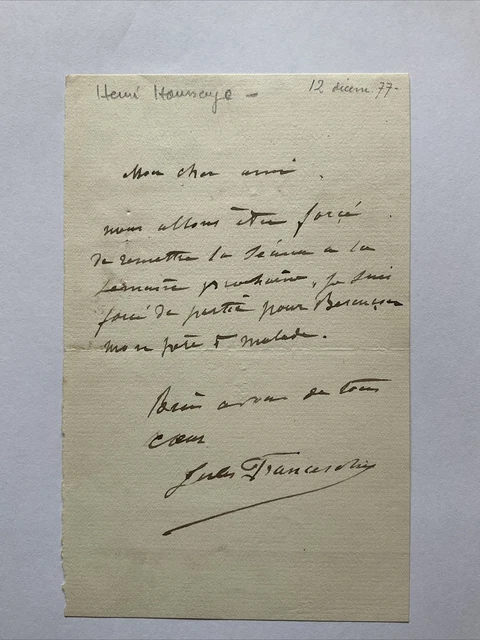 Henri Houssaye -
12 décem 77-
Mon cher ami,
nous allons être forcé
de remettre la séance a la
semaine prochaine, je suis
forcé de partir pour Besançon
mon père malade.
Bien a vous de tout
cœur
Jules Franceschi